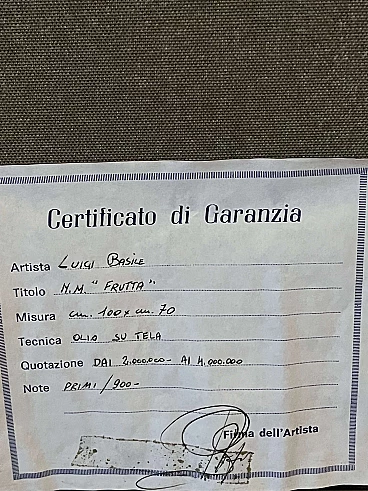 Certificato di Garanzia
Artista LUIGI BASILE
Titolo N.M. "FRUTTA"
Misura cm. 100 x cm. 70
Tecnica OLIO SU TELA
Quotazione DAI 2.000.000- AI 4.000.000
Note PRIMI/900-
Firma dell'Artista